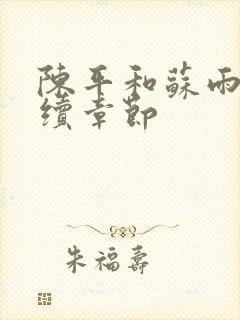 陳平和蘇雨
續章節
朱福壽